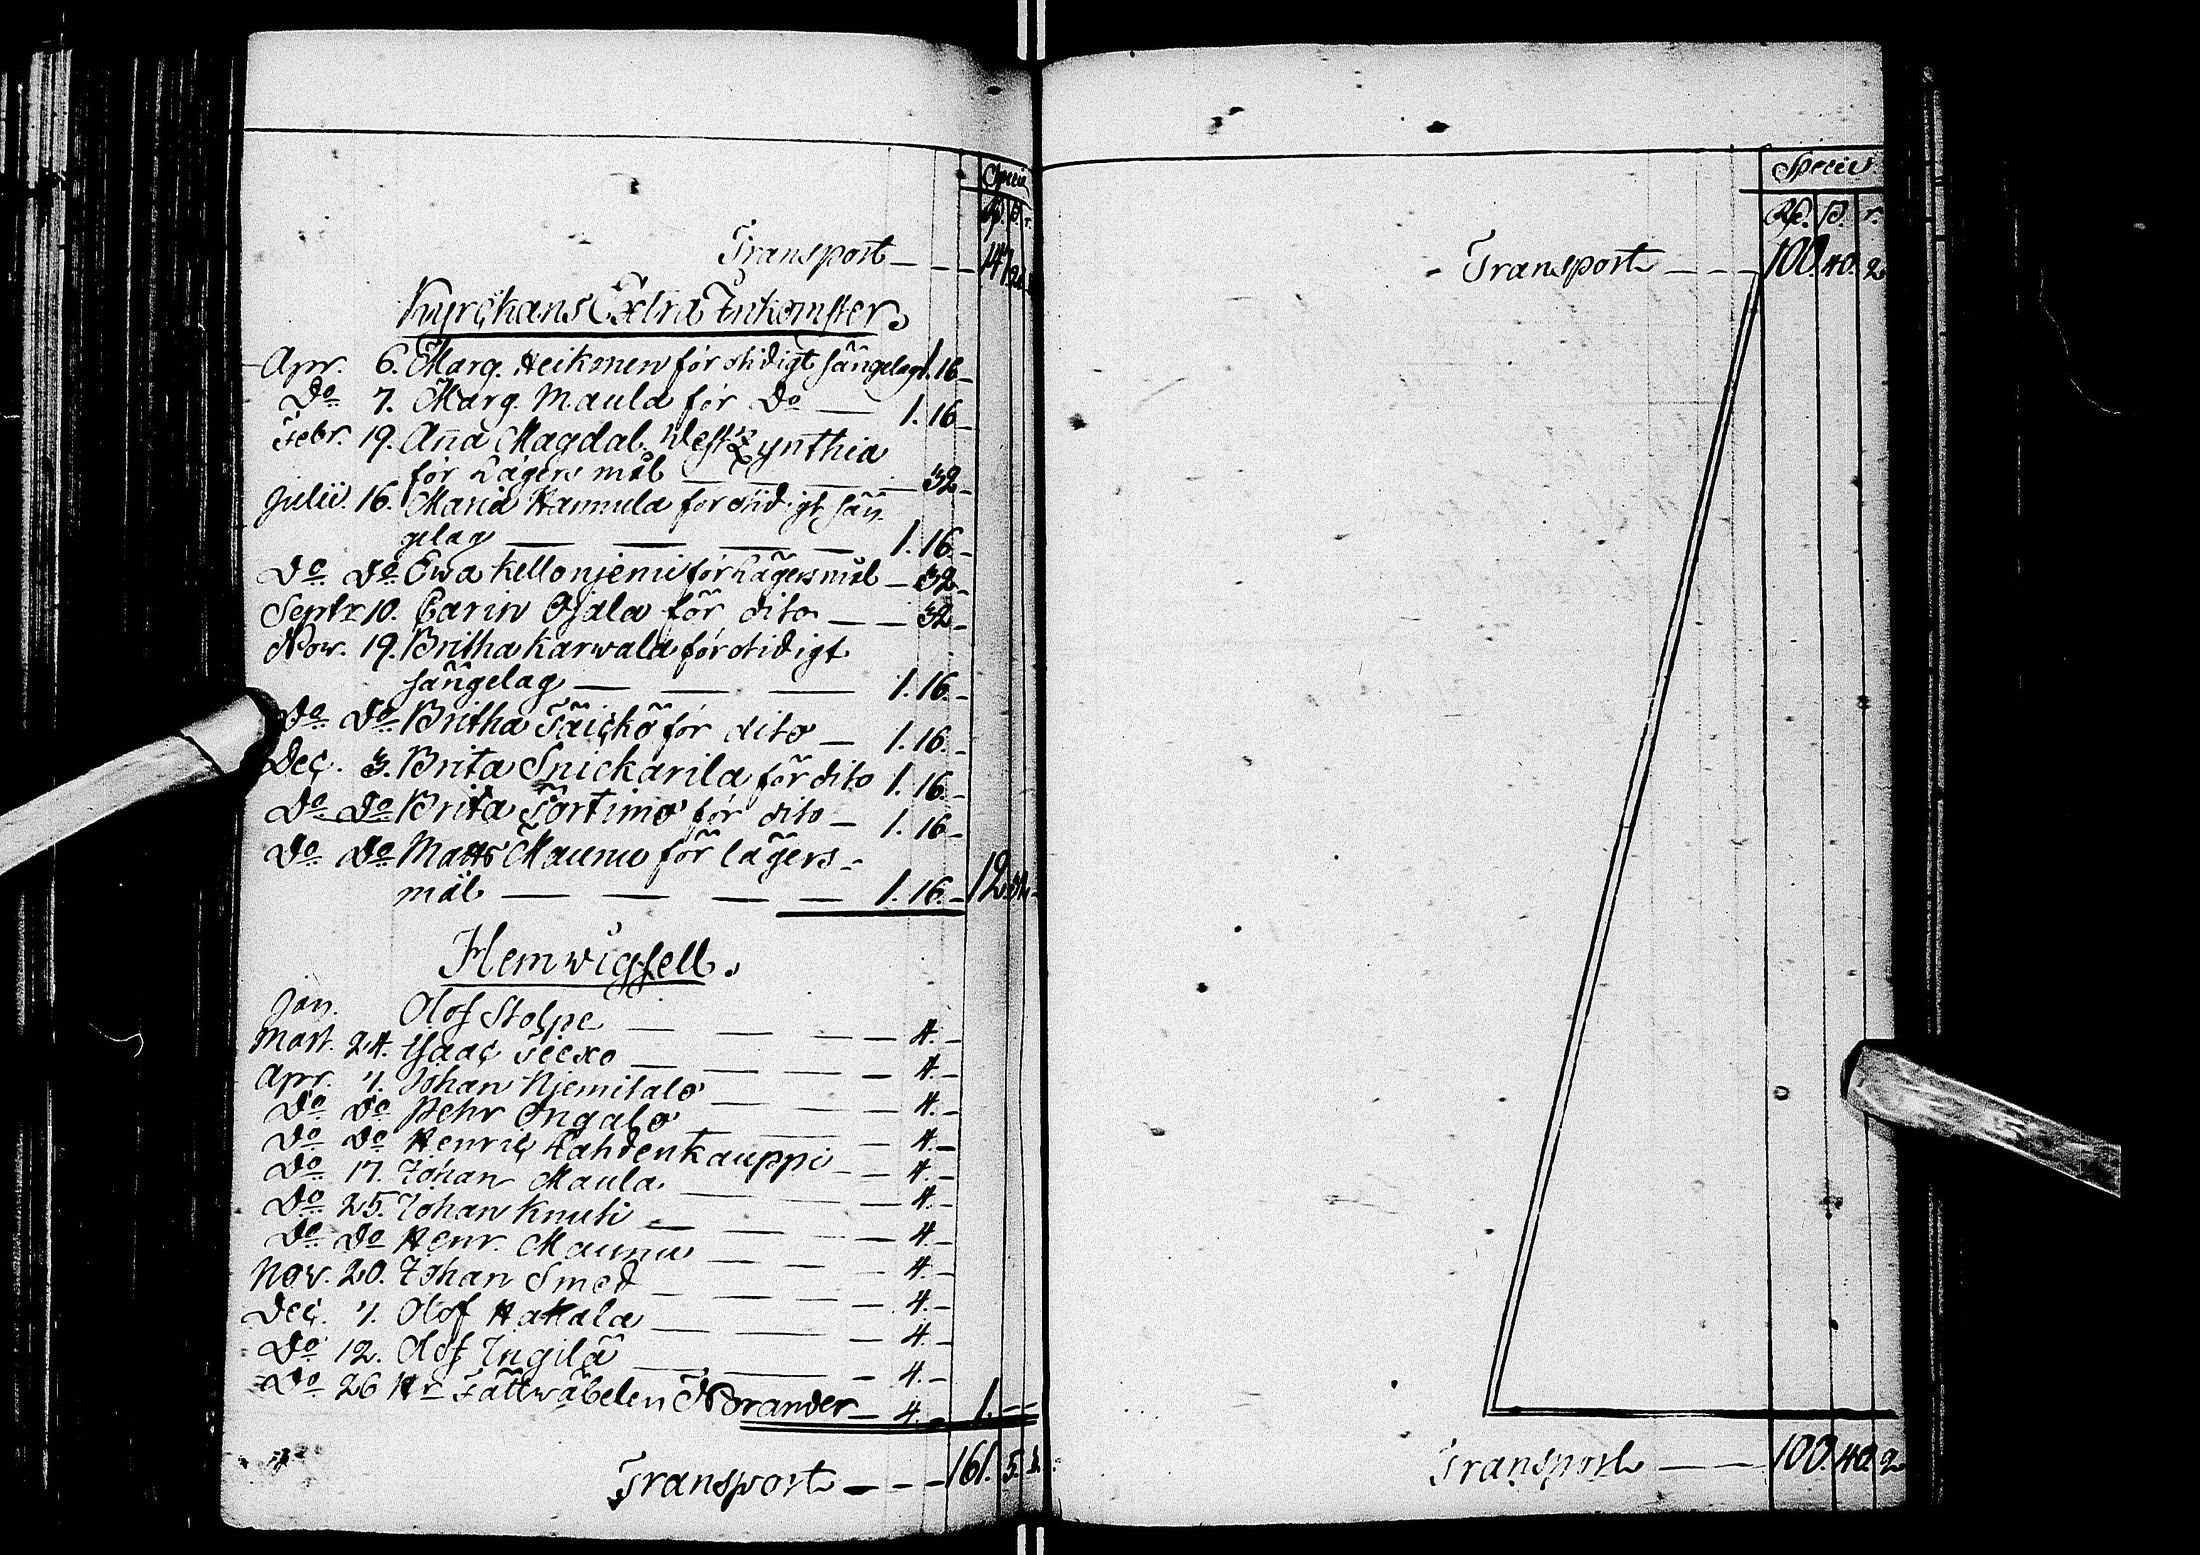 Specie
Rd. ß. r.
Transport — — — 147.
Kyrckans Extra Inkomster.
Apr. 6. Marg. Heikonen för otidigt sängelag 1.16.-
Do 7. Marg. Maula för Do — 1.16.-
Febr. 19. Aña Magdal. Westzynthia
för Lägersmål — — — 32.-
Julii. 16. Maria Hannula för otidigt sän-
gelag — — — — 1.16.-
Do Do Ewa Kellonjemi för Lägersmål — 32.-
Septr 10. Carin Ojala för dito — — 32.-
Nov. 19. Britha Karwala för otidigt
sängelag — — — 1.16.-
Do Do Britha Täickö för dito — 1.16.-
Dec. 3. Brita Snickarila för dito 1.16.-
Do Do Brita Tortimo för dito — 1.16.-
Do Do Matts Maunu för lägers-
mål — — — — 1.16.- 12.
Hemwigsell.
Jan. Olof Stolpe — — — — 4.-
Mart. 24. Isaac — — — — 4.-
Apr. 7. Johan Njemitalo — — — 4.-
Do Do Pehr Ongalo — — — 4.-
Do Do Henric Lahdenkauppi — — 4.-
Do 17. Johan Maula. — — — 4.-
Do 25. Johan Knuti — — — 4.-
Do Do Henr. Maunu — — — 4.-
Nov. 20. Johan Smed — — — 4.-
Dec. 7. Olof Hakala — — — 4.-
Do 12. Olof Ingilä — — — 4.-
Do 26 Hr Fältwäbelen Norander — 4.- 1.--
Transport — — — 161. 5.
Specie.
Rd. ß. r.
Transport — — — 100. 40. 2
Transport — — 100. 40. 2